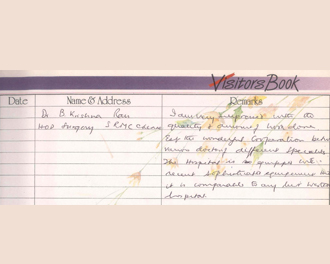 Visitors Book
Date Name & Address Remarks
Dr B. Krishna Rau I am very impressed with the
HOD Surgery SRMC Chennai quality & amount work done
the wonderful Cooperation between
various doctors different Specialists.
The Hospital is equipped with
recent sophisticated equipment
it is comparable to any best
hospital